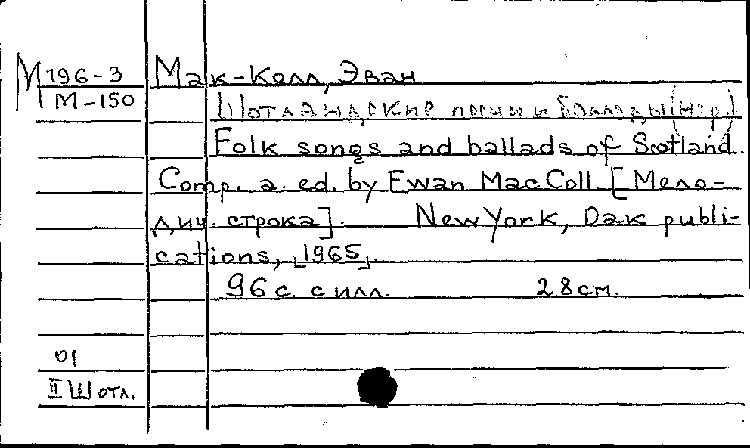 М 196-3 Мак-Колл, Эван
М-150 Шотландские песни и баллады (нар.)
Folk songs and ballads of Scotland.
Comp. a. ed. by Ewan MacColl [Мело-
дич. строка]. New York, Oak publi-
cations, [1965].
96 с. с илл. 28 см.
01
II Шотл.